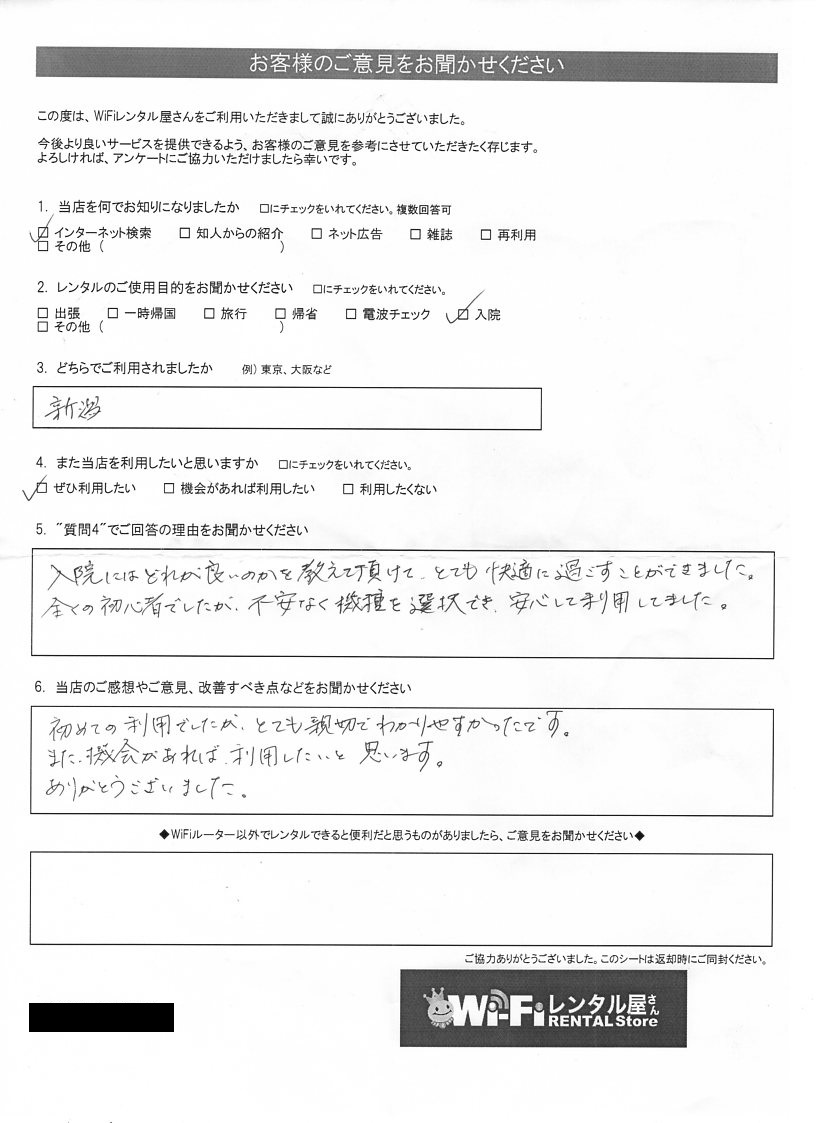 お客様のご意見をお聞かせください
この度は、WiFiレンタル屋さんをご利用いただきまして誠にありがとうございました。
今後より良いサービスを提供できるよう、お客様のご意見を参考にさせていただきたく存じます。
よろしければ、アンケートにご協力いただけましたら幸いです。
1. 当店を何でお知りになりましたか □にチェックをいれてください。複数回答可
☑ インターネット検索 □ 知人からの紹介 □ ネット広告 □ 雑誌 □ 再利用
□ その他 ( )
2. レンタルのご使用目的をお聞かせください □にチェックをいれてください。
□ 出張 □ 一時帰国 □ 旅行 □ 帰省 □ 電波チェック ☑ 入院
□ その他 ( )
3. どちらでご利用されましたか 例) 東京、大阪など
新潟
4. また当店を利用したいと思いますか □にチェックをいれてください。
☑ ぜひ利用したい □ 機会があれば利用したい □ 利用したくない
5. "質問4"でご回答の理由をお聞かせください
入院にはどれが良いのかを教えて頂けて、とても快適に過ごすことができました。
全くの初心者でしたが、不安なく機種を選択でき、安心して利用してました。
6. 当店のご感想やご意見、改善すべき点などをお聞かせください
初めての利用でしたが、とても親切でわかりやすかったです。
また、機会があれば、利用したいと思います。
ありがとうございました。
◆WiFiルーター以外でレンタルできると便利だと思うものがありましたら、ご意見をお聞かせください◆
ご協力ありがとうございました。このシートは返却時にご同封ください。
Wi-Fiレンタル屋さん
RENTAL Store